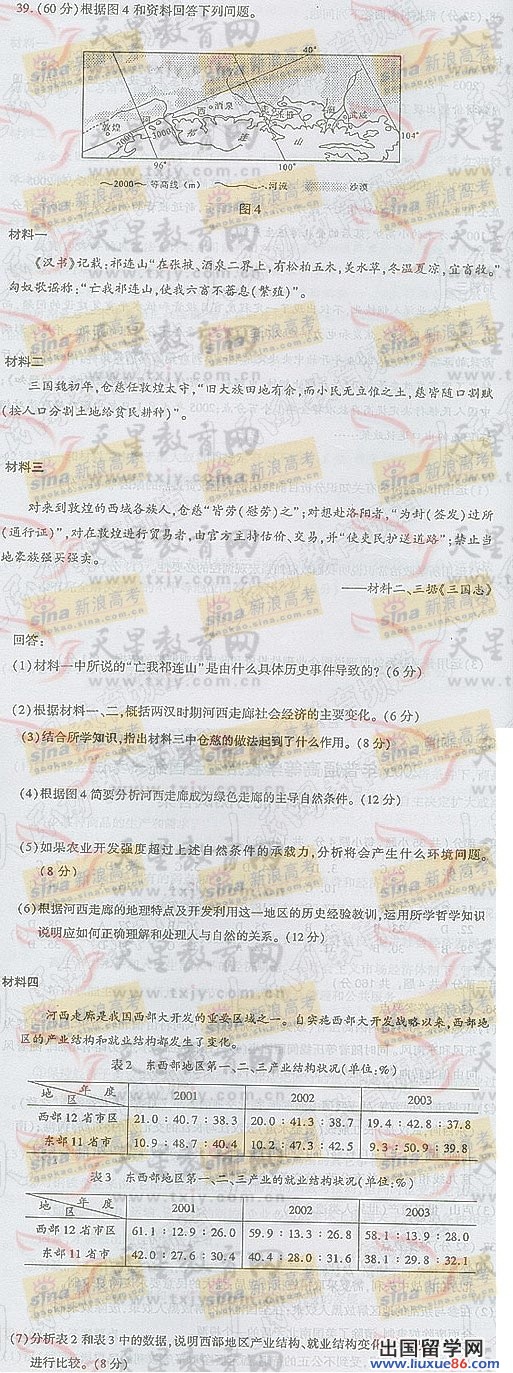 39.(60分)根据图4和资料回答下列问题。
40°
敦煌
河
西
酒泉
张掖
武威
祁
连
山
3000
104°
96°
100°
2000 等高线(m) 河流 沙漠
图4
材料一
《汉书》记载:祁连山“在张掖、酒泉二界上,有松柏五木,美水草,冬温夏凉,宜畜牧。”
匈奴歌谣称:“亡我祁连山,使我六畜不蕃息(繁殖)”。
材料二
三国魏初年,仓慈任敦煌太守,“旧大族田地有余,而小民无立锥之土,慈皆随口割赋
(按人口分割土地给贫民耕种)”。
材料三
对来到敦煌的西域各族人,仓慈“皆劳(慰劳)之”;对想赴洛阳者,“为封(签发)过所
(通行证)”,对在敦煌进行贸易者,由官方主持估价、交易,并“使吏民护送道路”;禁止当
地豪族强买强卖。
——材料二、三据《三国志》
回答:
(1)材料一中所说的“亡我祁连山”是由什么具体历史事件导致的?(6分)
(2)根据材料一、二,概括两汉时期河西走廊社会经济的主要变化。(6分)
(3)结合所学知识,指出材料三中仓慈的做法起到了什么作用。(8分)
(4)根据图4简要分析河西走廊成为绿色走廊的主导自然条件。(12分)
(5)如果农业开发强度超过上述自然条件的承载力,分析将会产生什么环境问题。
(8分)
(6)根据河西走廊的地理特点及开发利用这一地区的历史经验教训,运用所学哲学知识
说明应如何正确理解和处理人与自然的关系。(12分)
材料四
河西走廊是我国西部大开发的重要区域之一。自实施西部大开发战略以来,西部地
区的产业结构和就业结构都发生了变化。
表2 东西部地区第一、二、三产业结构状况(单位:%)
地区 年度 2001 2002 2003
西部12省市区 21.0:40.7:38.3 20.0:41.3:38.7 19.4:42.8:37.8
东部11省市 10.9:48.7:40.4 10.2:47.3:42.5 9.3:50.9:39.8
表3 东西部地区第一、二、三产业的就业结构状况(单位:%)
地区 年度 2001 2002 2003
西部12省市区 61.1:12.9:26.0 59.9:13.3:26.8 58.1:13.9:28.0
东部11省市 42.0:27.6:30.4 40.4:28.0:31.6 38.1:29.8:32.1
(7)分析表2和表3中的数据,说明西部地区产业结构、就业结构变化
进行比较。(8分)
出国留学网
www.liuxue86.com
天星教育网
www.txjy.com.cn
sina新浪高考